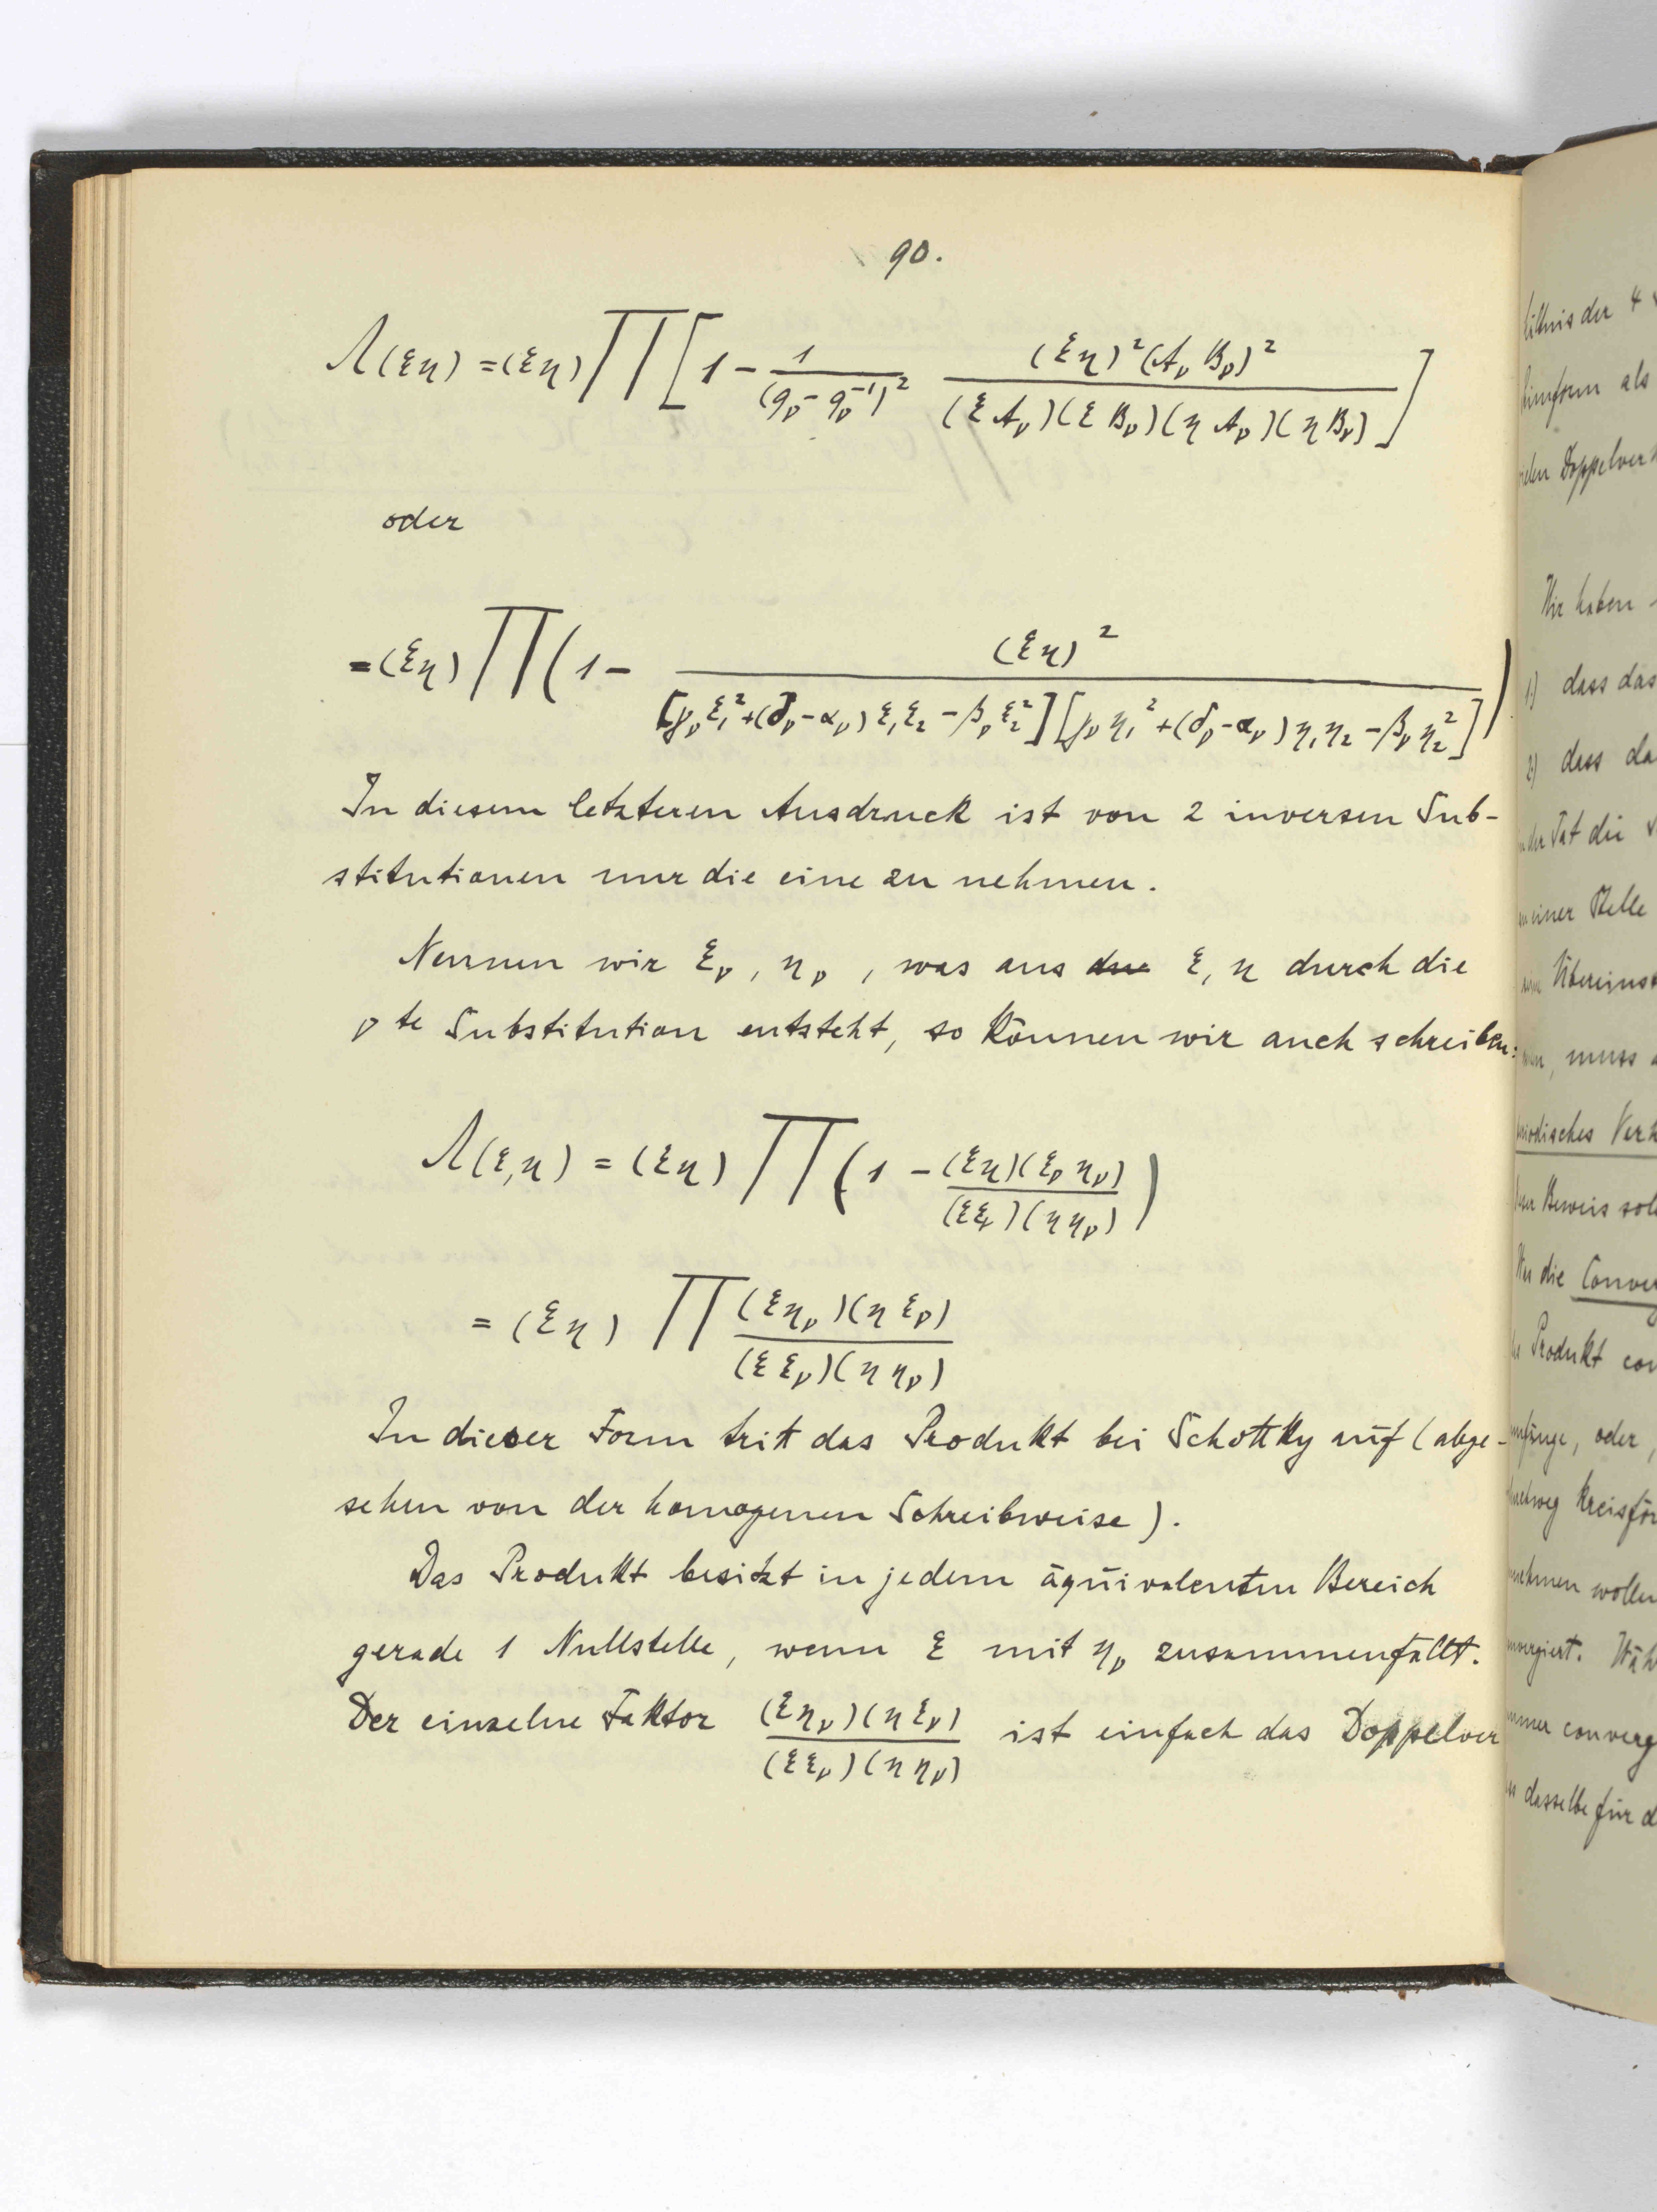 90.
Λ(ξη) = (ξη) ∏ [1 - 1/(qᵥ - qᵥ⁻¹)² (ξη)²(Aᵥ Bᵥ)²/((ξ Aᵥ)(ξ Bᵥ)(η Aᵥ)(η Bᵥ))]
oder
= (ξη) ∏ (1 - (ξη)²/([γᵥ ξ₁² + (δᵥ - αᵥ) ξ₁ξ₂ - βᵥ ξ₂²][γᵥ η₁² + (δᵥ - αᵥ) η₁η₂ - βᵥ η₂²]))
In diesem letzteren Ausdruck ist von 2 inversen Sub-
stitutionen nur die eine zu nehmen.
Nennen wir ξᵥ, ηᵥ, was aus ξ, η durch die
ν te Substitution entsteht, so können wir auch schreiben:
Λ(ξ,η) = (ξη) ∏ (1 - (ξη)(ξᵥ ηᵥ)/((ξξᵥ)(ηηᵥ)))
= (ξη) ∏ (ξηᵥ)(η ξᵥ)/((ξ ξᵥ)(η ηᵥ))
In dieser Form tritt das Produkt bei Schottky auf (abge-
sehen von der homogenen Schreibweise).
Das Produkt besitzt in jedem äquivalenten Bereich
gerade 1 Nullstelle, wenn ξ mit ηᵥ zusammenfällt.
Der einzelne Faktor (ξηᵥ)(η ξᵥ)/((ξξᵥ)(η ηᵥ)) ist einfach das Doppelver
der 4
als
Doppelver
Wir haben
1) dass das
2) dass da
der Tat die
einer Stelle
Übereinst
muss
Beweis
die Conver
Produkt
oder
kreisför
wollen
converg
dasselbe für d